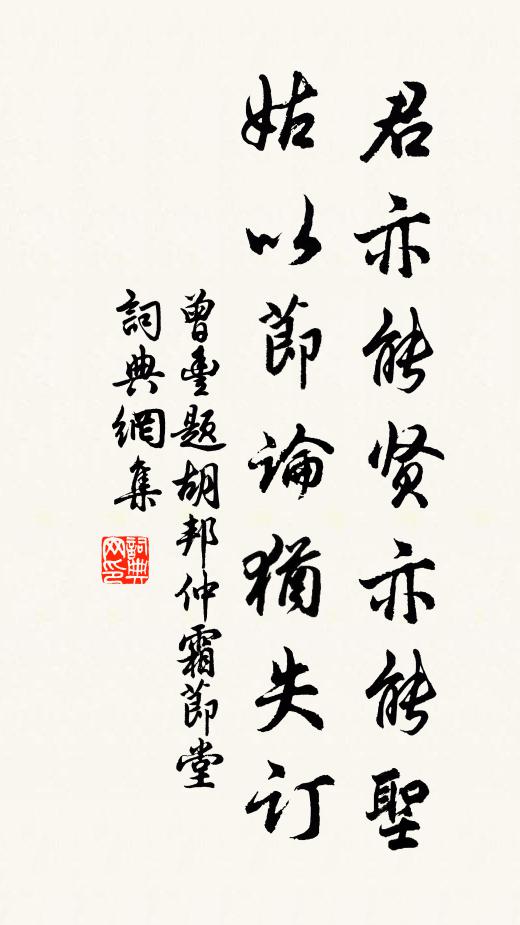 君亦能贤亦能聖
姑以莭論猶失订
曾豊题胡邦仲霜莭堂
詞典網集
詞典
网印